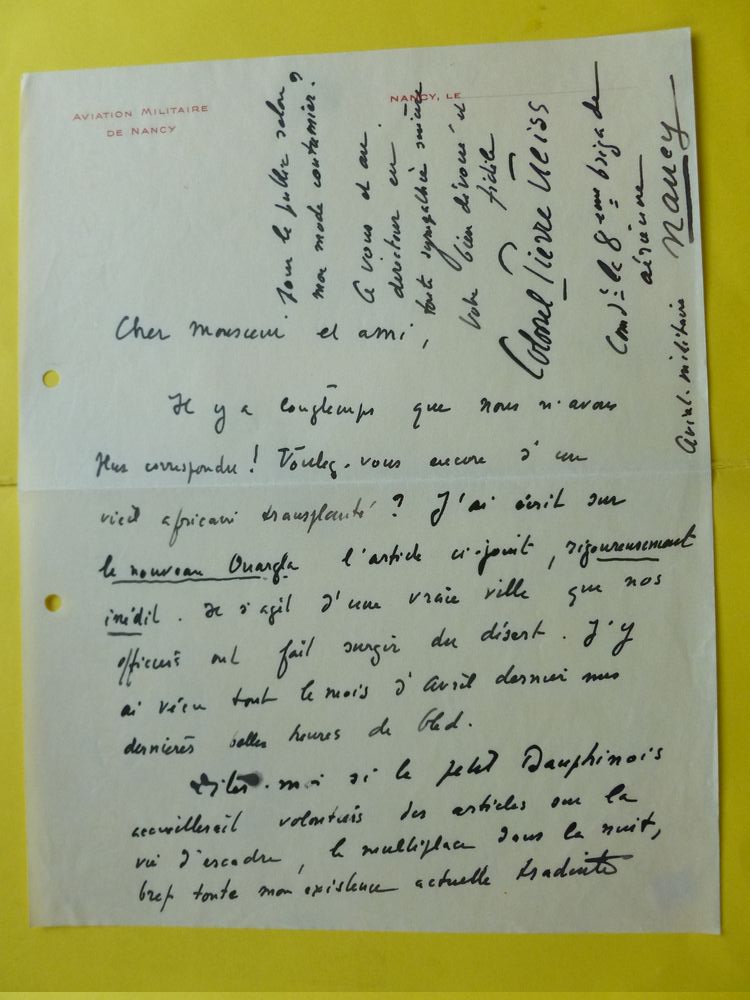 AVIATION MILITAIRE
DE NANCY
NANCY, LE
Cher Monsieur et ami,
Il y a longtemps que nous n'avons
plus correspondu ! Voulez-vous encore d'un
vieil africain transplanté ? J'ai écrit sur
le nouveau Ouargla l'article ci-joint, rigoureusement
inédit. Il s'agit d'une vraie ville que nos
officiers ont fait surgir du désert. J'y
ai vécu tout le mois d'Avril dernier mes
dernières belles heures de bled.
Dites-moi si le petit Dauphinois
accueillerait volontiers des articles sur la
vie d'escadre, le multiplace dans la nuit,
bref toute mon existence actuelle traduite
pour le public selon
mon mode coutumier.
A vous et au
directeur en
toute sympathie
votre bien dévoué et
fidèle
Colonel Pierre Weiss
Comd.t la 8eme brigade
aérienne
Aviat. militaire Nancy